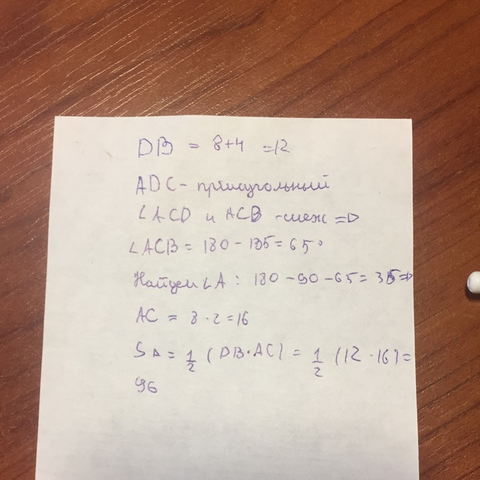 DB = 8+4 =12
ADC - прямоугольный
∠ACD и ACB -смеж =>
∠ACB = 180 - 135 = 65°
Найдем ∠A: 180 - 90 - 65 = 35 =>
AC = 8 · 2 = 16
S△ = 1/2 (DB·AC) = 1/2 (12 · 16) =
96